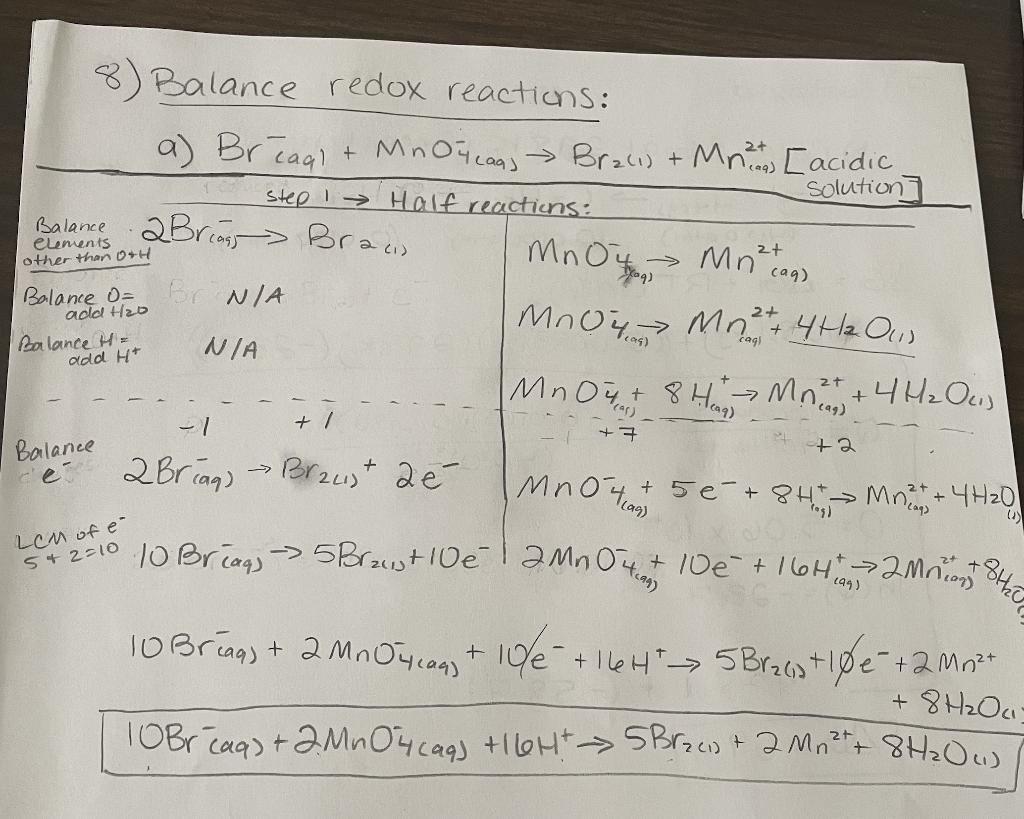 8) Balance redox reactions:
a) Br⁻(aq) + MnO₄⁻(aq) → Br₂(l) + Mn²⁺(aq) [acidic solution]
step 1 → Half reactions:
Balance elements other than O+H
2Br⁻(aq) → Br₂(l)
MnO₄⁻(aq) → Mn²⁺(aq)
Balance O = add H₂O
N/A
MnO₄⁻(aq) → Mn²⁺(aq) + 4H₂O(l)
Balance H = add H⁺
N/A
MnO₄⁻(aq) + 8H⁺(aq) → Mn²⁺(aq) + 4H₂O(l)
-1 +1
+7 +2
Balance e⁻
2Br⁻(aq) → Br₂(l) + 2e⁻
MnO₄⁻(aq) + 5e⁻ + 8H⁺(aq) → Mn²⁺(aq) + 4H₂O(l)
LCM of e⁻
5 + 2 = 10
10Br⁻(aq) → 5Br₂(l) + 10e⁻
2MnO₄⁻(aq) + 10e⁻ + 16H⁺(aq) → 2Mn²⁺(aq) + 8H₂O(l)
10Br⁻(aq) + 2MnO₄⁻(aq) + 10e⁻ + 16H⁺ → 5Br₂(l) + 10e⁻ + 2Mn²⁺
+ 8H₂O(l)
10Br⁻(aq) + 2MnO₄⁻(aq) + 16H⁺ → 5Br₂(l) + 2Mn²⁺ + 8H₂O(l)